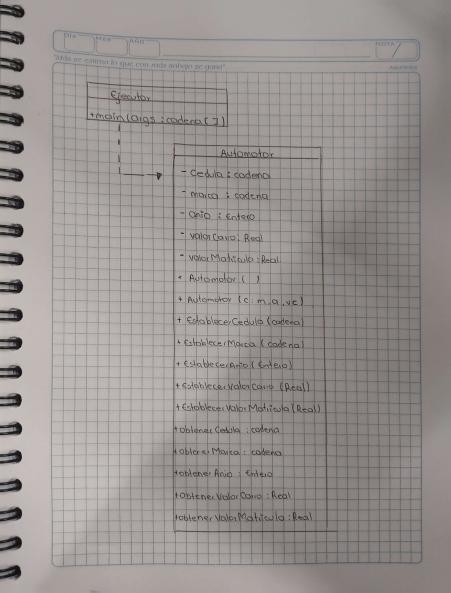 DIA
MES
AÑO
NOTA
Ejecutor
+main(args : cadena[])
Automotor
- Cedula : cadena
- marca : cadena
- Anio : Entero
- valorCarro: Real
- valorMatricula : Real
+ Automotor ( )
+ Automotor (c, m, a, vc)
+ EstablecerCedula (cadena)
+ EstablecerMarca (cadena)
+ EstablecerAnio (Entero)
+ EstablecerValorCarro (Real)
+ EstablecerValorMatricula (Real)
+obtenerCedula : cadena
+obtenerMarca : cadena
+obtenerAnio : Entero
+obtenerValorCarro : Real
+obtenerValorMatricula : Real